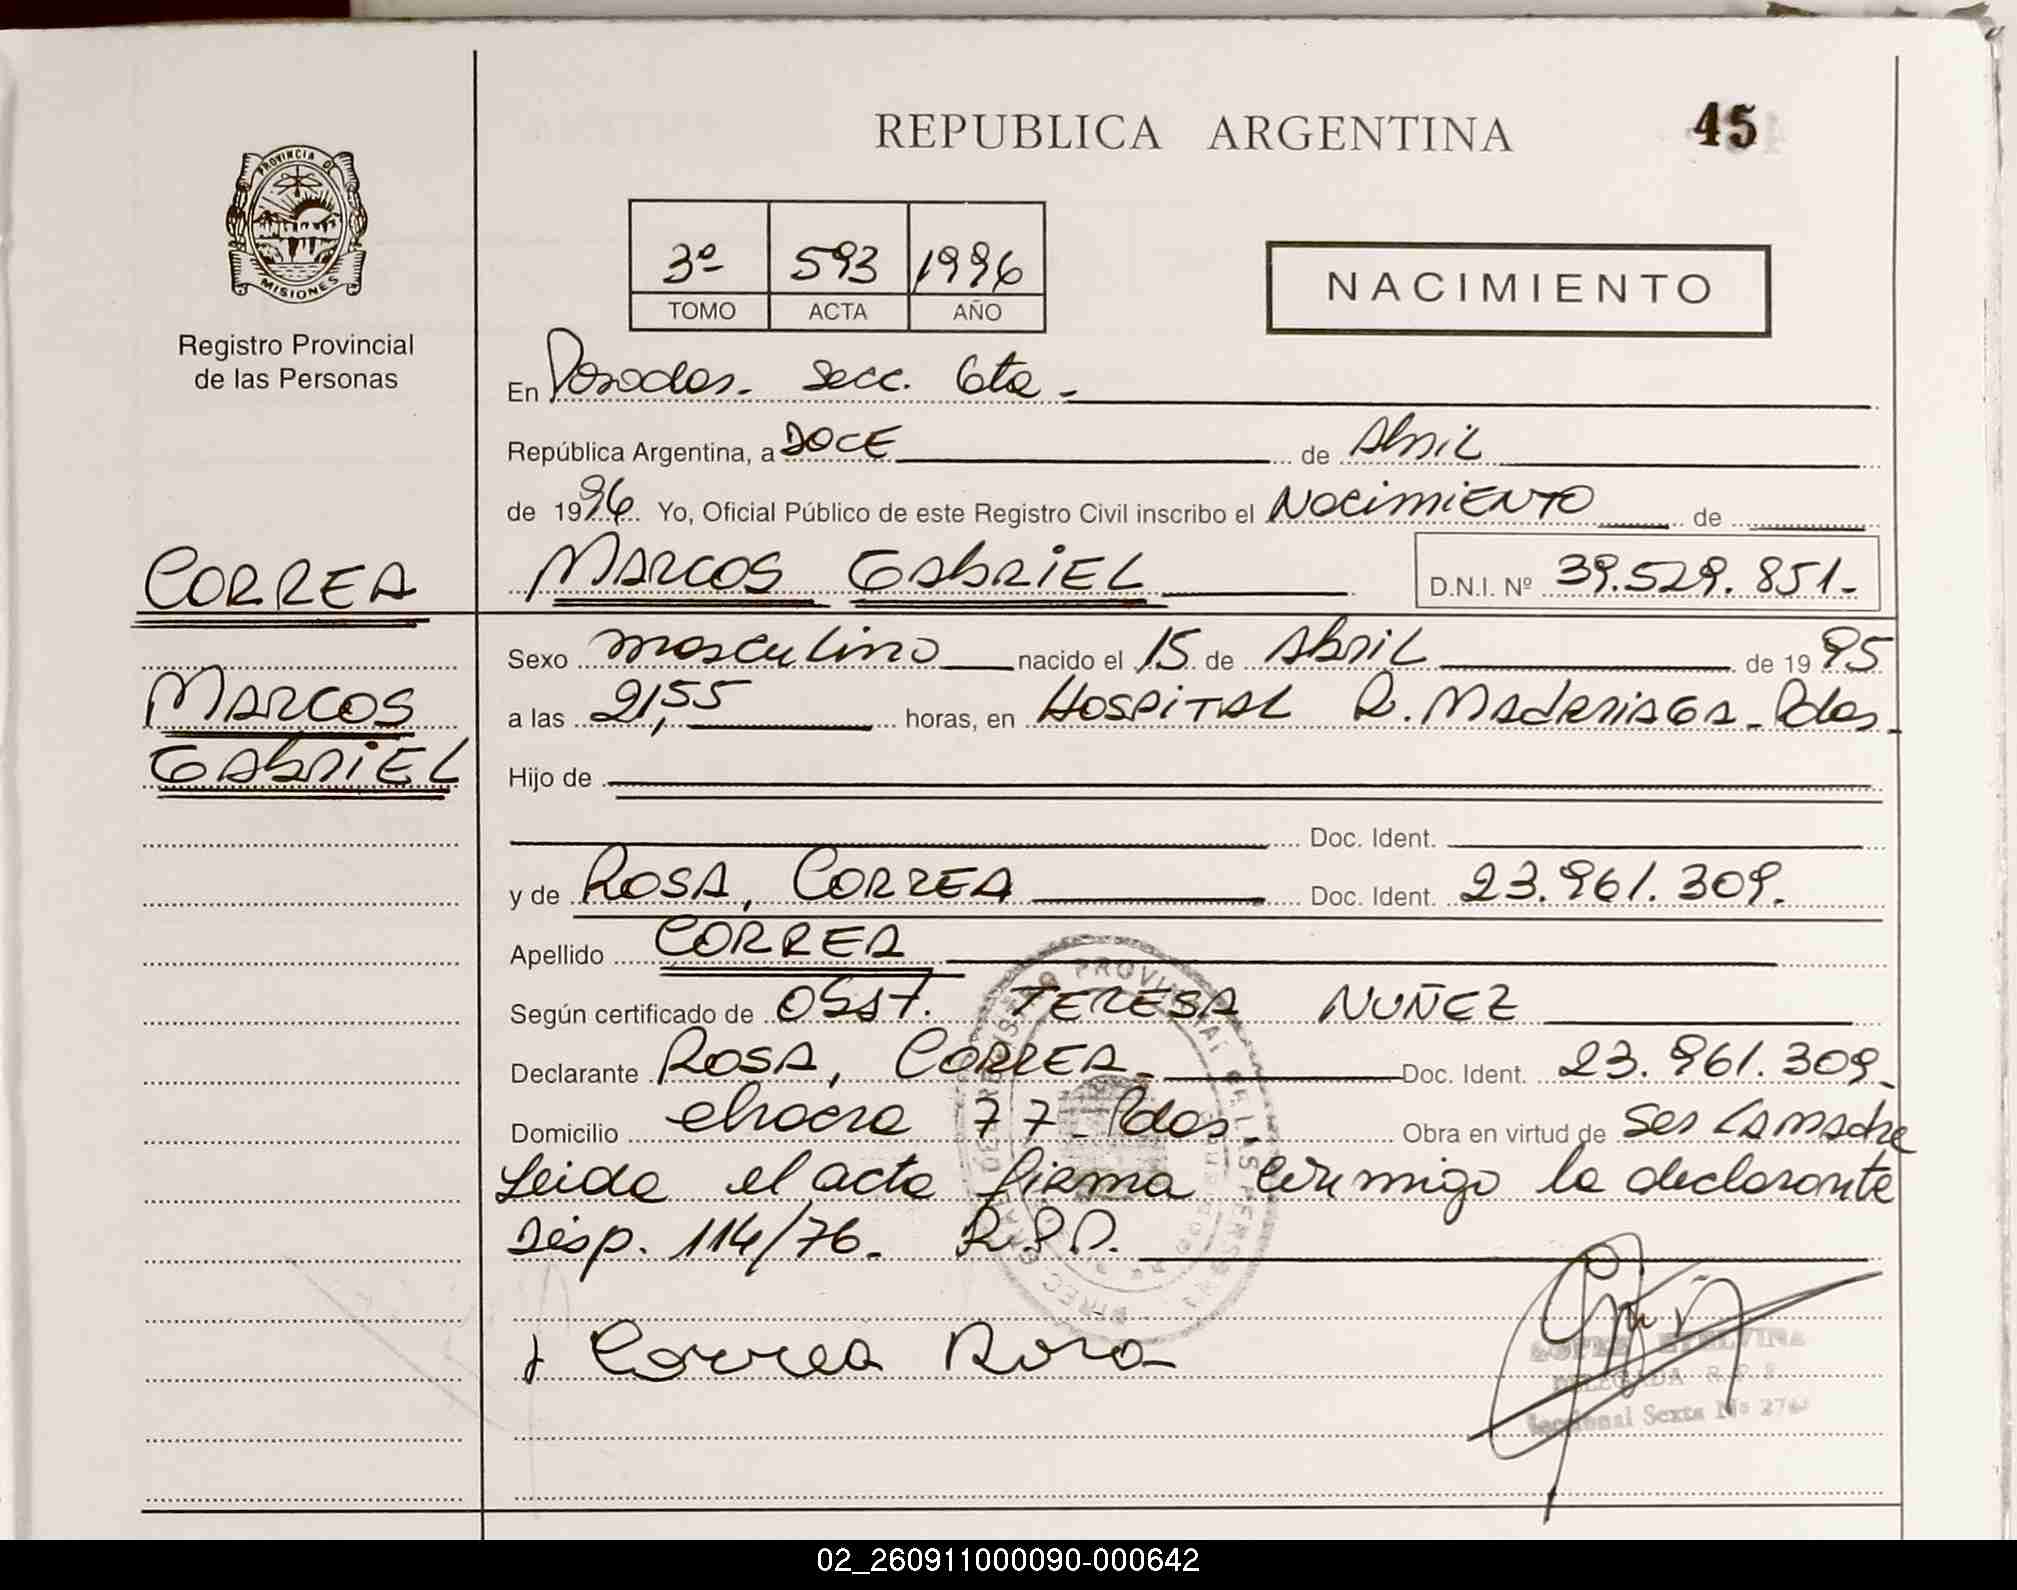 REPUBLICA ARGENTINA
45
PROVINCIA DE
MISIONES
Registro Provincial
de las Personas
3º 593 1996
TOMO ACTA AÑO
NACIMIENTO
En Posadas. Secc. 6ta -
República Argentina, a DOCE de Abril
de 1996 Yo, Oficial Público de este Registro Civil inscribo el NacimiENTO de
CORREA
MARCOS GABRIEL D.N.I. Nº 39.529.851.-
Sexo masculino nacido el 15 de Abril de 1995
MARCOS
a las 21,55 horas, en HOSPITAL R. MADARIAGA - Pdas -
GABRIEL
Hijo de
Doc. Ident.
y de ROSA, CORREA Doc. Ident. 23.961.309.
Apellido CORREA
Según certificado de OBST. TERESA NUÑEZ
Declarante ROSA, CORREA - Doc. Ident. 23.961.309 -
Domicilio chacra 77 - Pdas. - Obra en virtud de Ser La madre
Leida el acta firma conmigo la declarante
Disp. 114/76 - R.P.P.
Correa Rosa
LOPEZ ETELVINA
DELEGADA R.P.P.
Seccional Sexta Nº
02_260911000090-000642